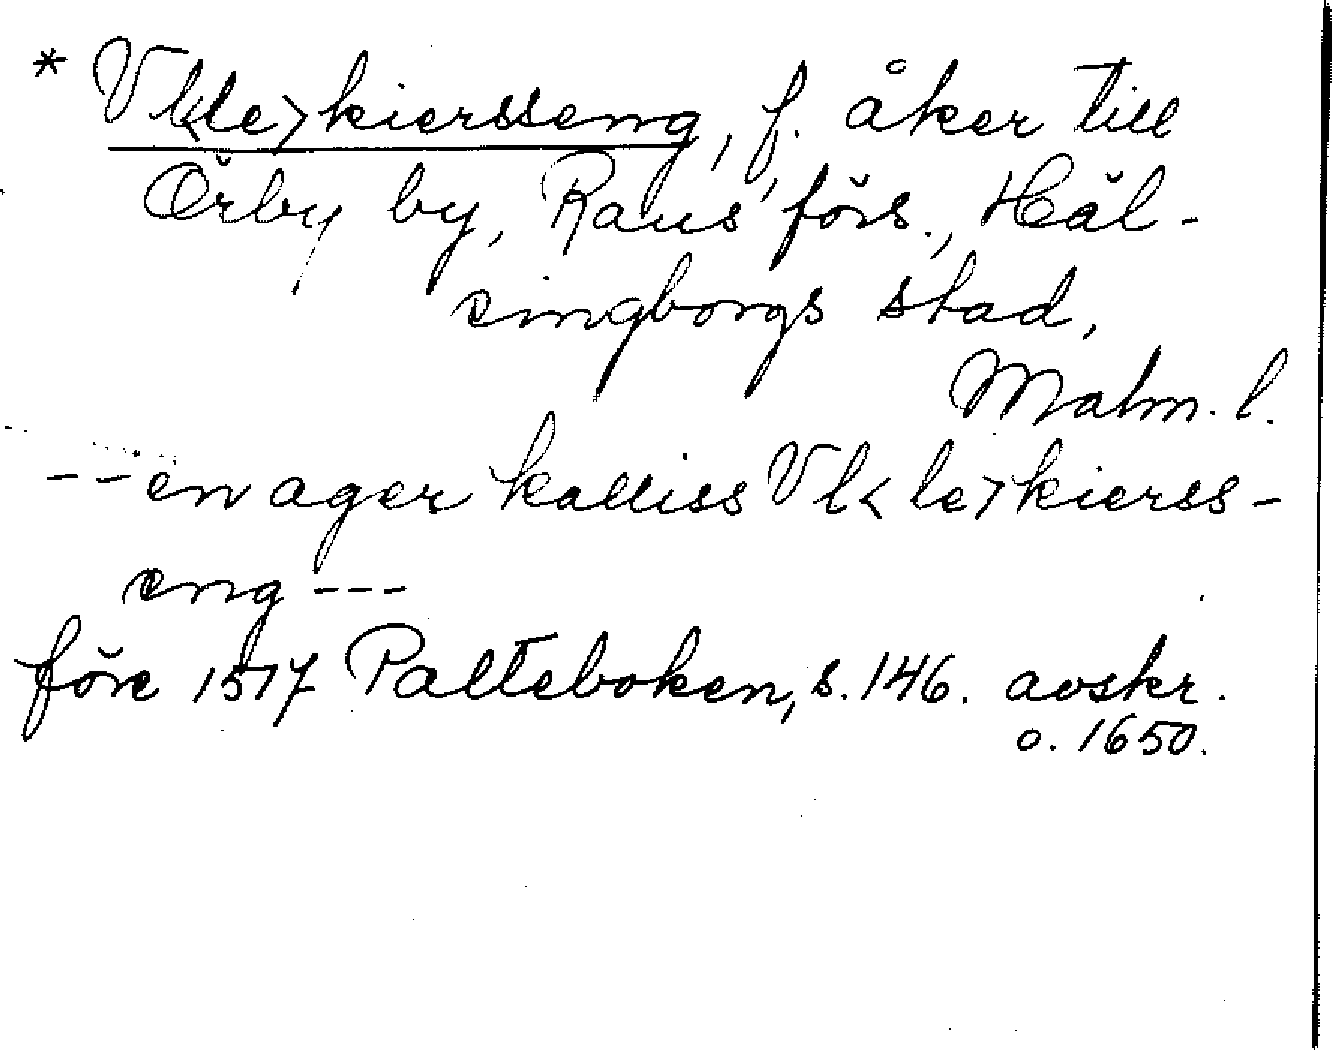 * Vl<le>kiersseng, f. åker till
Örby by, Raus förs., Häl-
singborgs stad,
Malm. l.
-- en ager kalliss Vl<le>kierss-
eng ---
före 1517 Palteboken, s. 146. avskr.
o. 1650.